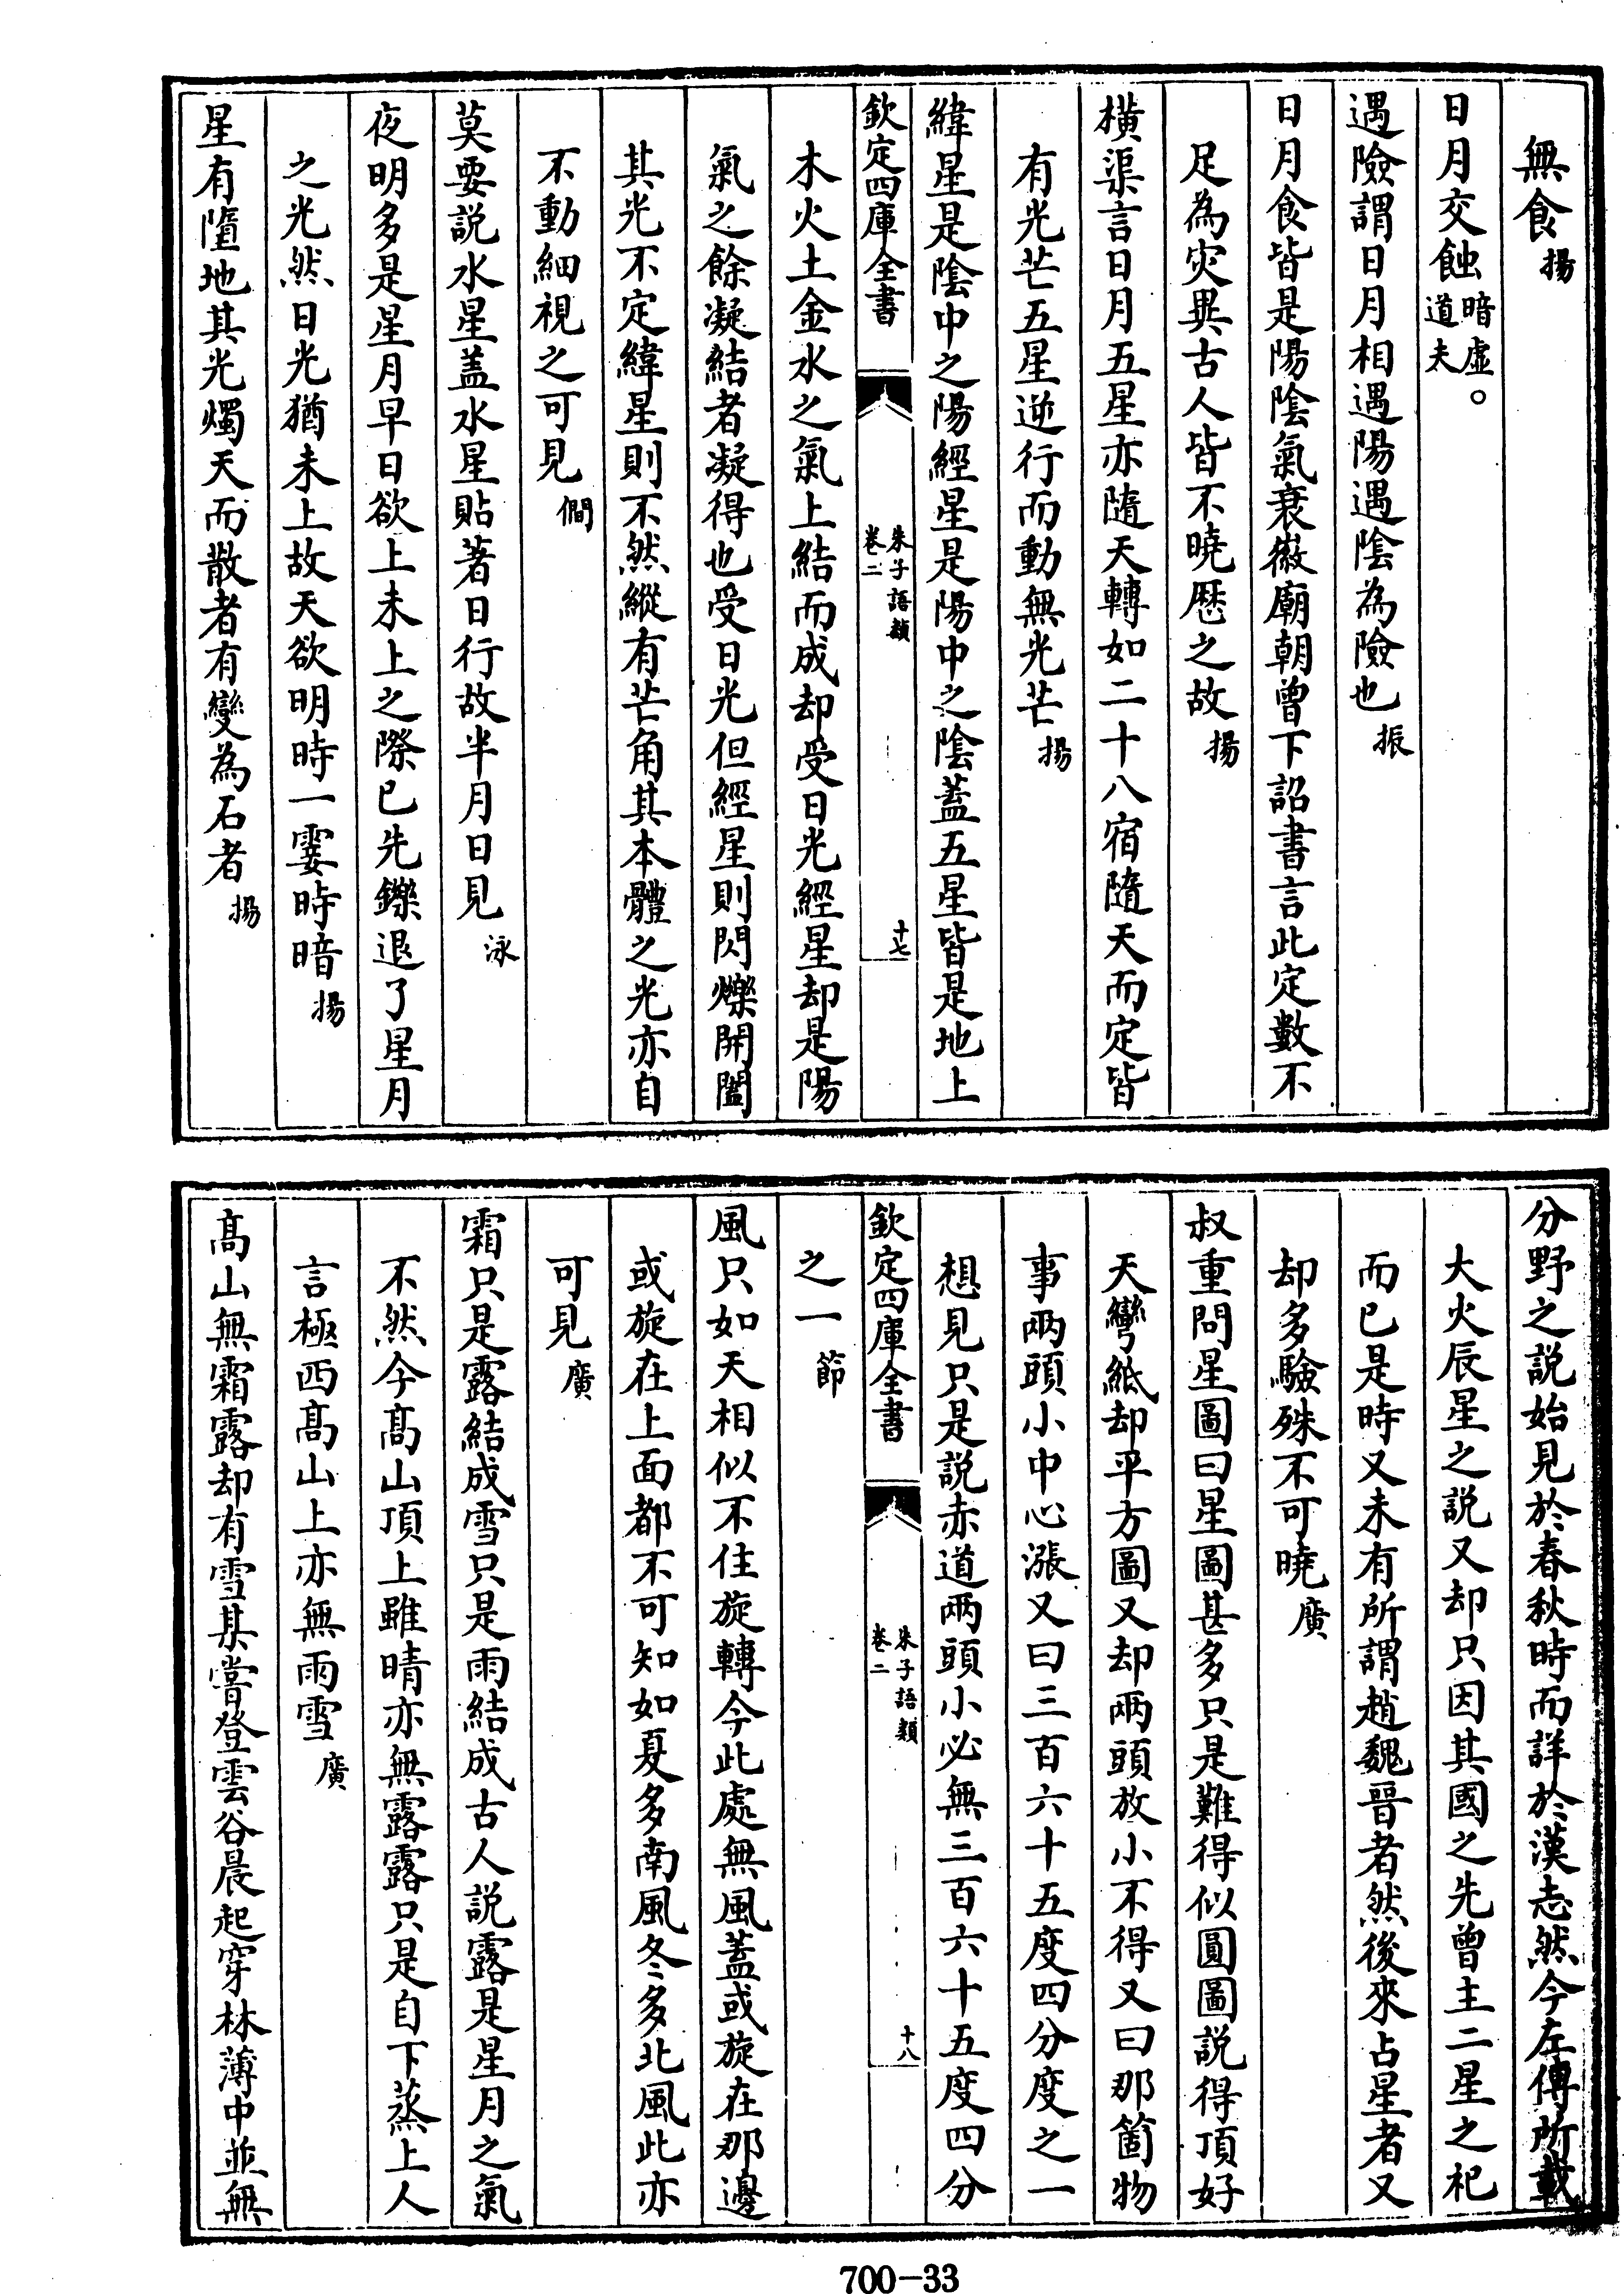 無食揚
日月交蝕暗虛。道夫
遇險謂日月相遇陽遇陰為險也振
日月食皆是陽陰氣衰徽廟朝曾下詔書言此定數不
足為灾異古人皆不曉歴之故揚
橫渠言日月五星亦隨天轉如二十八宿隨天而定皆
有光芒五星逆行而動無光芒揚
緯星是陰中之陽經星是陽中之陰蓋五星皆是地上
欽定四庫全書
朱子語類
卷二
十七
木火土金水之氣上結而成却受日光經星却是陽
氣之餘凝結者凝得也受日光但經星則閃爍開闔
其光不定緯星則不然縱有芒角其本體之光亦自
不動細視之可見僩
莫要説水星盖水星貼著日行故半月日見泳
夜明多是星月早日欲上未上之際已先鑠退了星月
之光然日光猶未上故天欲明時一霎時暗揚
星有墮地其光燭天而散者有變為石者揚
分野之説始見於春秋時而詳於漢志然今左傳所載
大火辰星之説又却只因其國之先曾主二星之祀
而已是時又未有所謂趙魏晉者然後來占星者又
却多驗殊不可曉廣
叔重問星圖曰星圖甚多只是難得似圓圖説得頂好
天彎紙却平方圖又却兩頭放小不得又曰那箇物
事兩頭小中心漲又曰三百六十五度四分度之一
想見只是説赤道兩頭小必無三百六十五度四分
欽定四庫全書
朱子語類
卷二
十八
之一節
風只如天相似不住旋轉今此處無風蓋或旋在那邊
或旋在上面都不可知如夏多南風冬多北風此亦
可見廣
霜只是露結成雪只是雨結成古人説露是星月之氣
不然今髙山頂上雖晴亦無露露只是自下蒸上人
言極西髙山上亦無雨雪廣
髙山無霜露却有雪某嘗登雲谷晨起穿林薄中並無
700-33